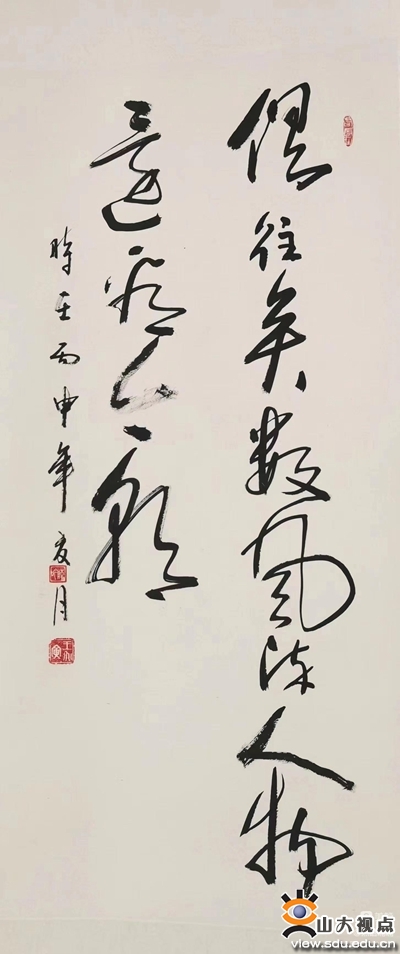 俱往矣數風流人物
還看今朝
時在丙申年夏月
山大视点
view.sdu.edu.cn